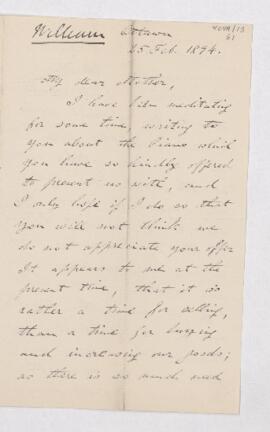 William Ottawa
25 Feb. 1894.
My dear Mother,
I have been meditating
for some time, writing to
you about the Piano which
you have so kindly offered
to present us with, and
I only hope if I do so that
you will not think we
do not appreciate your offer
It appears to me at the
present time, that it is
rather a time for selling,
than a time for buying
and increasing our goods;
as there is so much need